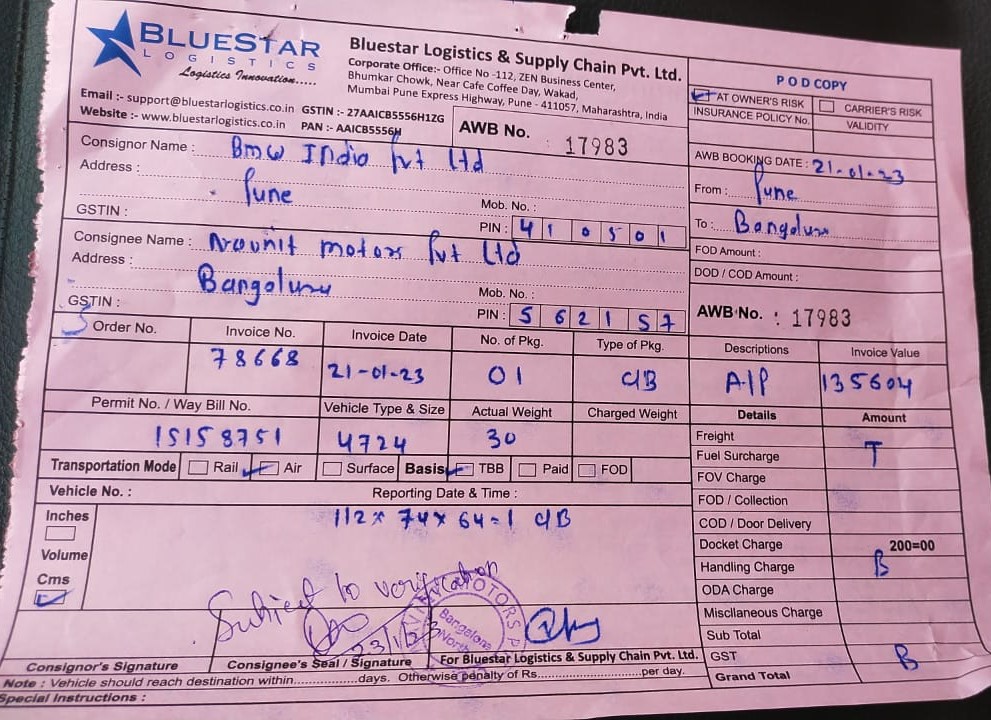 BLUESTAR
LOGISTICS
Logistics Innovation.....
Email :- support@bluestarlogistics.co.in
Website :- www.bluestarlogistics.co.in
Bluestar Logistics & Supply Chain Pvt. Ltd.
Corporate Office:- Office No -112, ZEN Business Center,
Bhumkar Chowk, Near Cafe Coffee Day, Wakad,
Mumbai Pune Express Highway, Pune - 411057, Maharashtra, India
GSTIN :- 27AAICB5556H1ZG
PAN :- AAICB5556H
AWB No. : 17983
POD COPY
AT OWNER'S RISK CARRIER'S RISK
INSURANCE POLICY No. VALIDITY
AWB BOOKING DATE : 21-01-23
From : Pune
To : Bangaluru
FOD Amount :
DOD / COD Amount :
AWB No. : 17983
Consignor Name : Bmw India Pvt Ltd
Address : Pune
Mob. No. :
GSTIN : PIN : 410501
Consignee Name : Navnit motors Pvt Ltd
Address : Bangaluru
Mob. No. :
GSTIN : PIN : 562157
Order No. Invoice No. Invoice Date No. of Pkg. Type of Pkg. Descriptions Invoice Value
78668 21-01-23 01 C/B A/P 135604
Permit No. / Way Bill No. Vehicle Type & Size Actual Weight Charged Weight Details Amount
15158751 4724 30
Transportation Mode Rail Air Surface Basis TBB Paid FOD
Vehicle No. : Reporting Date & Time :
112 x 74 x 64 = 1 C/B
Inches
Volume
Cms
Freight
Fuel Surcharge T
FOV Charge
FOD / Collection
COD / Door Delivery
Docket Charge 200=00
Handling Charge B
ODA Charge
Miscllaneous Charge
Sub Total
GST B
Grand Total
Subject to verification
23/1/23
MOTORS P
Bangalore
North
Consignor's Signature Consignee's Seal / Signature For Bluestar Logistics & Supply Chain Pvt. Ltd.
Note : Vehicle should reach destination within..............days. Otherwise penalty of Rs..............per day.
Special Instructions :